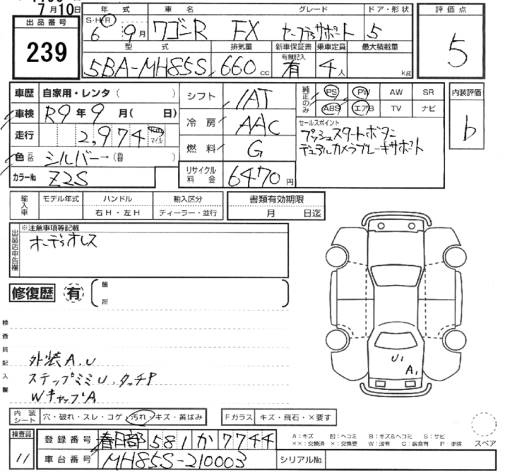 7月10日
年式 車名 グレード ドア・形状 評価点
出品番号
239
S・H・R 6年9月 ワゴンR FX セーフティサポート 5
5
型式 排気量 新車保証書 乗車定員 最大積載量
5BA-MH85S 660cc 有無記入 有 4人 kg
車歴 自家用・レンタ( )
シフト IAT
純正のみ PS PW AW SR
ABS エアB TV ナビ
内装評価
b
車検 R9年9月( 日)
冷房 AAC
セールスポイント
プッシュスタートボタン
デュアルカメラブレーキサポート
走行 2,974
マイル
燃料 G
色 シルバー→(
カラーNo. Z2S
リサイクル料金 6470円
輸入車 モデル年式 ハンドル 輸入区分
右H・左H ディーラー・並行
書類有効期限
月 日迄
出品店申告欄
※注意事項等記載
オーディオレス
修復歴 有
箇所
検査員記入欄
外装A.U
ステップミミU.タッチP
WキャップA
U1
A1
内装シート 穴・破れ・スレ・コゲ・汚れ・キズ・黄ばみ Fガラス キズ・飛石・×要す
検査員
11
登録番号 春日部581か7744
車台番号 MH85S-210003 シリアルNo.
A:キズ U:ヘコミ B:キズ&ヘコミ S:サビ
××:交換済 ×:交換要 W:波有 C:腐食有 P:塗装
スペア